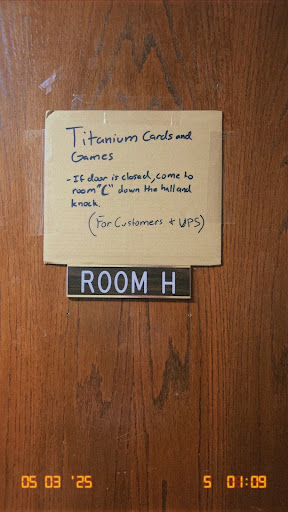 Titanium Cards and
Games
- If door is closed, come to
room "C" down the hall and
knock.
(For Customers + UPS)
ROOM H
05 03 '25 5 01:09